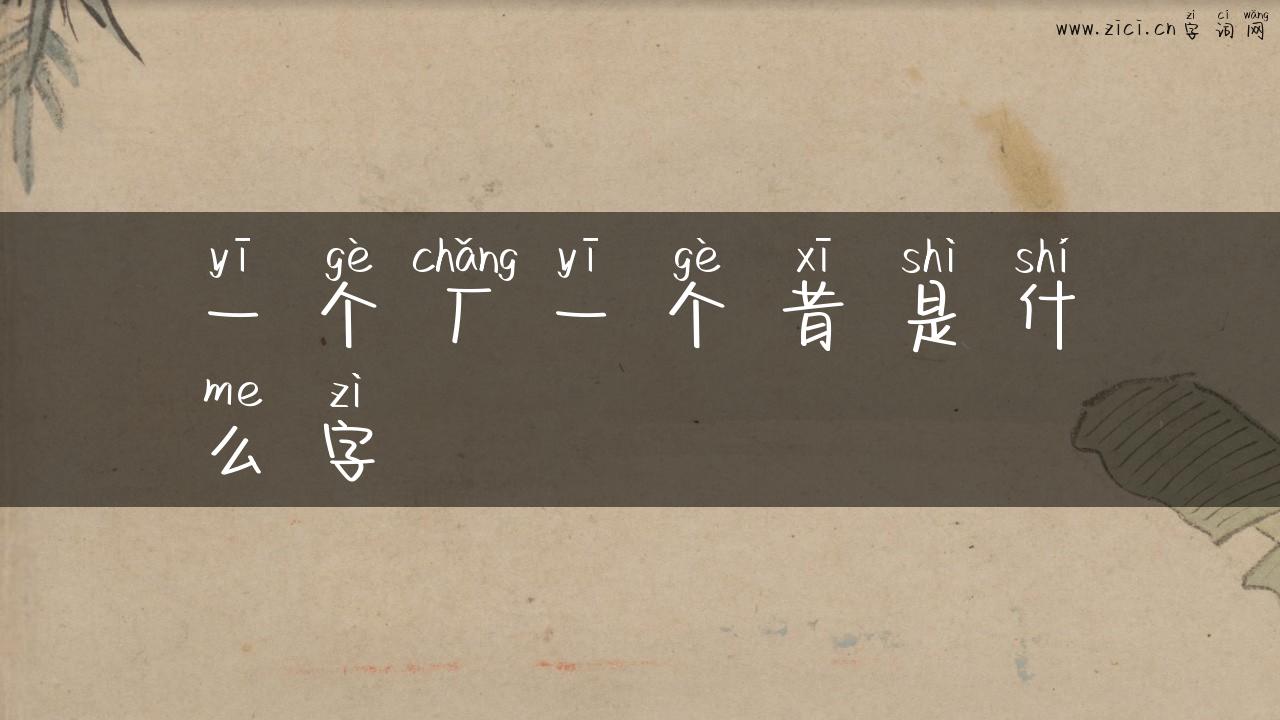 zì cí wǎng
www.zici.cn 字词网
yī gè chǎng yī gè xī shì shí
一个厂一个昔是什
me zì
么字